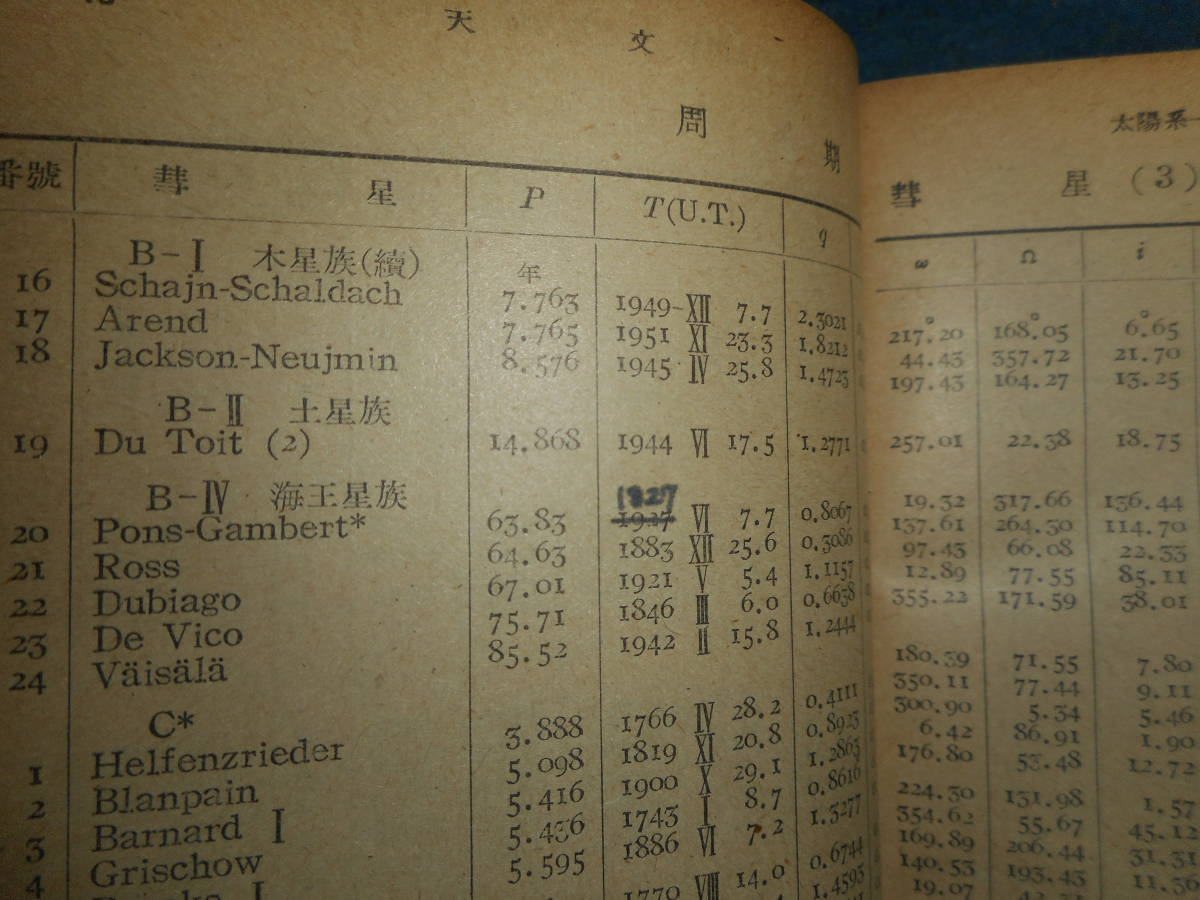 天 文
周 期
番號 彗 星 P T(U.T.) q
B-Ⅰ 木星族(續) 年
16 Schajn-Schaldach 7.763 1949-Ⅻ 7.7 2.3021
17 Arend 7.765 1951 Ⅺ 23.3 1.8212
18 Jackson-Neujmin 8.576 1945 Ⅳ 25.8 1.4723
B-Ⅱ 土星族
19 Du Toit (2) 14.868 1944 Ⅵ 17.5 1.2771
B-Ⅳ 海王星族
1827
20 Pons-Gambert* 63.83 1927 Ⅵ 7.7 0.8067
21 Ross 64.63 1883 Ⅻ 25.6 0.3086
22 Dubiago 67.01 1921 Ⅴ 5.4 1.1157
23 De Vico 75.71 1846 Ⅲ 6.0 0.6638
24 Väisälä 85.52 1942 Ⅱ 15.8 1.2444
C*
1 Helfenzrieder 3.888 1766 Ⅳ 28.2 0.4111
2 Blanpain 5.098 1819 Ⅺ 20.8 0.8923
3 Barnard Ⅰ 5.416 1900 Ⅹ 29.1 1.2865
4 Grischow 5.436 1743 Ⅰ 8.7 0.8616
Ⅰ 5.595 1886 Ⅵ 7.2 1.3277
1770 Ⅷ 14.0 0.6744
1.4593
太陽系
彗 星 (3)
ω Ω i
217°.20 168°.05 6°.65
44.43 357.72 21.70
197.43 164.27 13.25
257.01 22.38 18.75
19.32 317.66 136.44
137.61 264.30 114.70
97.43 66.08 22.33
12.89 77.55 85.11
355.22 171.59 38.01
180.39 71.55 7.80
350.11 77.44 9.11
300.90 5.34 5.46
6.42 86.91 1.90
176.80 53.48 12.72
224.30 131.98 1.57
354.62 55.67 45.12
169.89 206.44 31.31
140.53 193.43 11.36
19.07